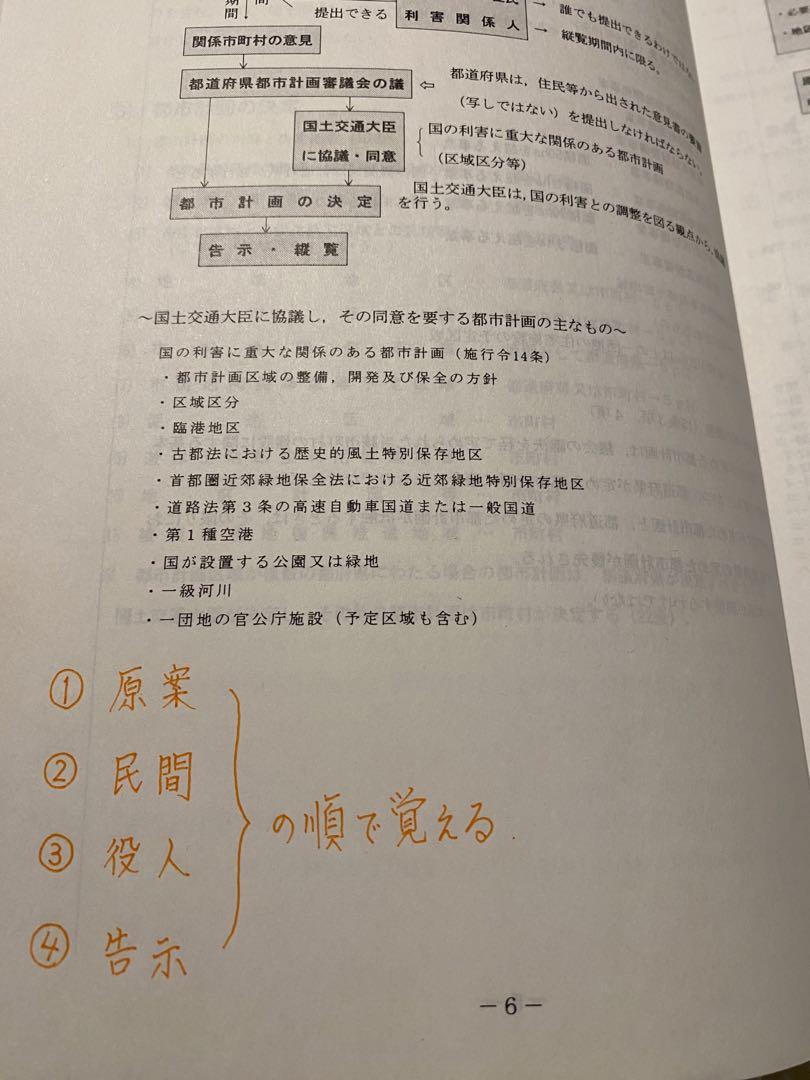 期間
間
提出できる
利害関係人
→ 誰でも提出できるわけでは
→ 縦覧期間内に限る。
・必要
・地区
関係市町村の意見
都道府県都市計画審議会の議
⇦ 都道府県は，住民等から出された意見書の要旨
（写しではない）を提出しなければならない。
国土交通大臣
に協議・同意
国の利害に重大な関係のある都市計画
（区域区分等）
都市計画の決定
国土交通大臣は，国の利害との調整を図る観点から，協議
を行う。
告示・縦覧
～国土交通大臣に協議し，その同意を要する都市計画の主なもの～
国の利害に重大な関係のある都市計画（施行令14条）
・都市計画区域の整備，開発及び保全の方針
・区域区分
・臨港地区
・古都法における歴史的風土特別保存地区
・首都圏近郊緑地保全法における近郊緑地特別保存地区
・道路法第３条の高速自動車国道または一般国道
・第１種空港
・国が設置する公園又は緑地
・一級河川
・一団地の官公庁施設（予定区域も含む）
① 原案
② 民間
③ 役人
④ 告示
の順で覚える.
－6－